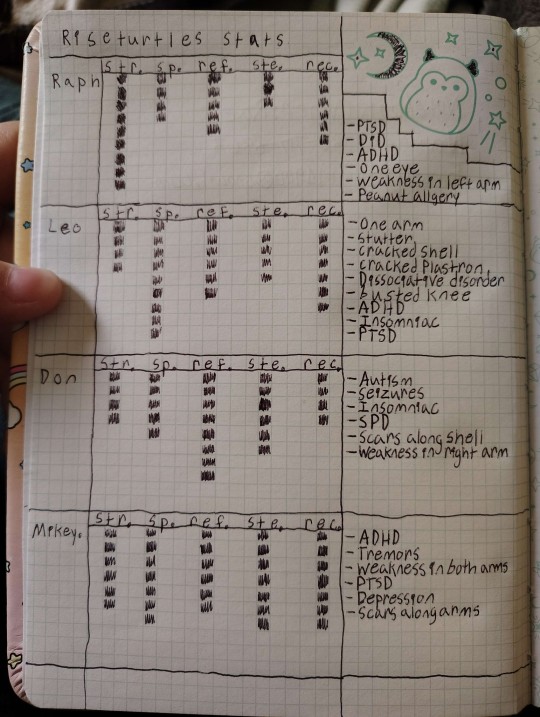 Riseturtles stats
Raph
str. sp. ref. ste. rec.
-PTSD
-DiD
-ADHD
-one eye
-weakness in left arm
-Peanut allgery
Leo
str. sp. ref. ste. rec.
-One arm
-Stutter
-cracked shell
-cracked Plastron
-Dissociative disorder
-busted knee
-ADHD
-Insomniac
-PTSD
Don
str. sp. ref. ste. rec.
-Autism
-seizures
-Insomniac
-SPD
-Scars along shell
-Weakness in right arm
Mikey.
str. sp. ref. ste. rec.
-ADHD
-Tremors
-Weakness in both arms
-PTSD
-Depression
-Scars along arms